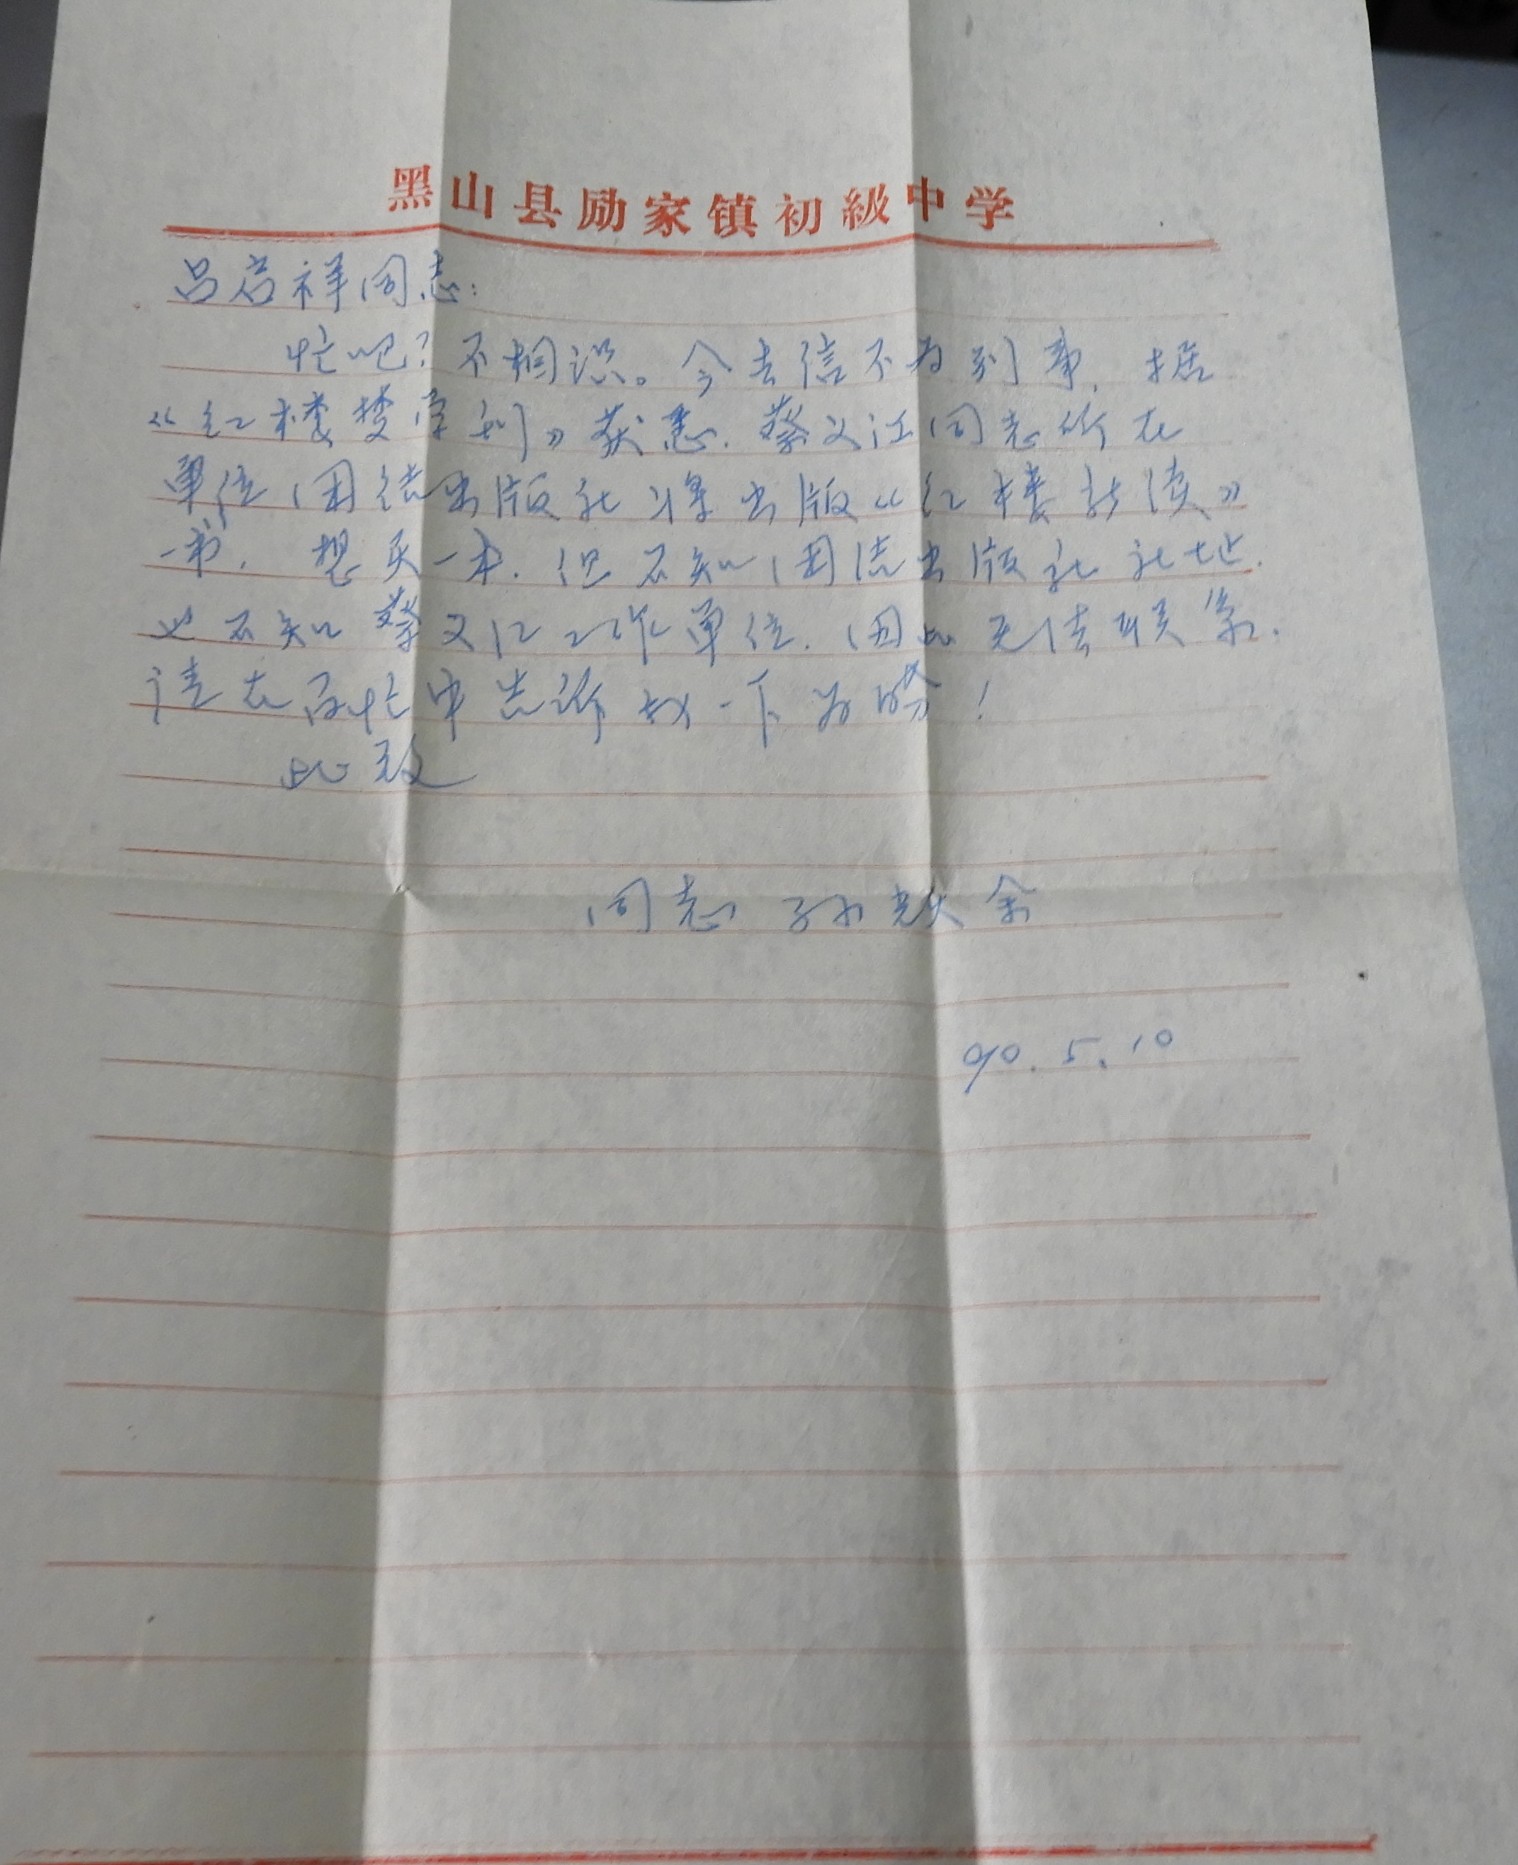 黑山县励家镇初級中学
吕启祥同志：
忙吧？不相识。今去信不为别事，据
《红楼梦学刊》获悉，蔡义江同志所在
单位团结出版社将出版《红楼新读》
一书，想买一本，但不知团结出版社社址，
也不知蔡义江工作单位，因此无法联系，
请在百忙中告诉我一下为盼！
此致
同志 孙
90.5.10